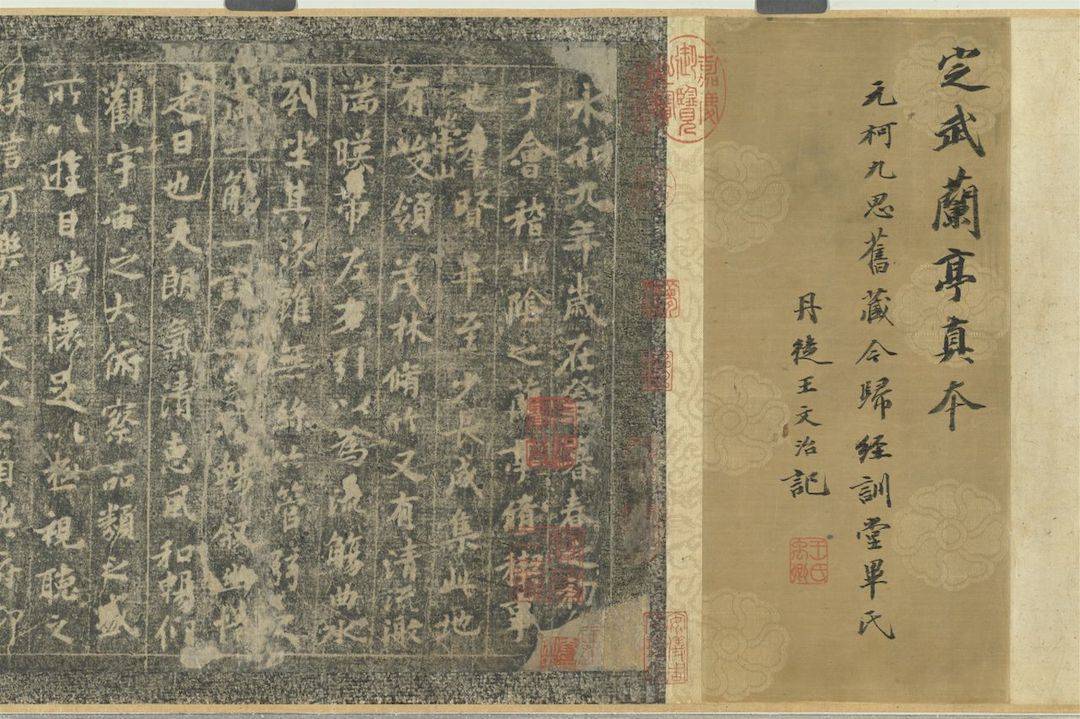 定武蘭亭真本
元柯九思舊藏今歸經訓堂畢氏
丹徒王文治記
王氏禹卿
嘉慶御覽之寶
永和九年歲在暮春之初
于會稽山陰之蘭亭脩稧事
也羣賢畢至少長咸集此地
有崇山峻領茂林脩竹又有清流激
湍暎帶左右引以為流觴曲水
列坐其次雖無絲竹管弦之
盛一觴一詠亦足以暢叙幽情
是日也天朗氣清惠風和暢仰
觀宇宙之大俯察品類之盛
所以遊目騁懷足以極視聽之
娛信可樂也夫人之相與俯仰